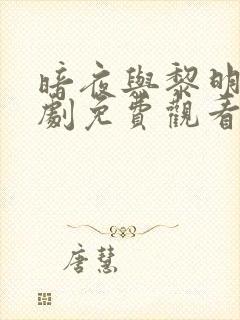 暗夜與黎明
劇免費觀看
唐慧